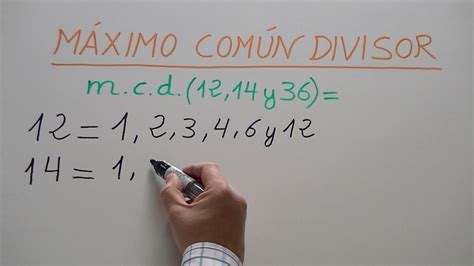 MÁXIMO COMÚN DIVISOR
m.c.d.(12,14 y 36)=
12 = 1, 2, 3, 4, 6 y 12
14 = 1,